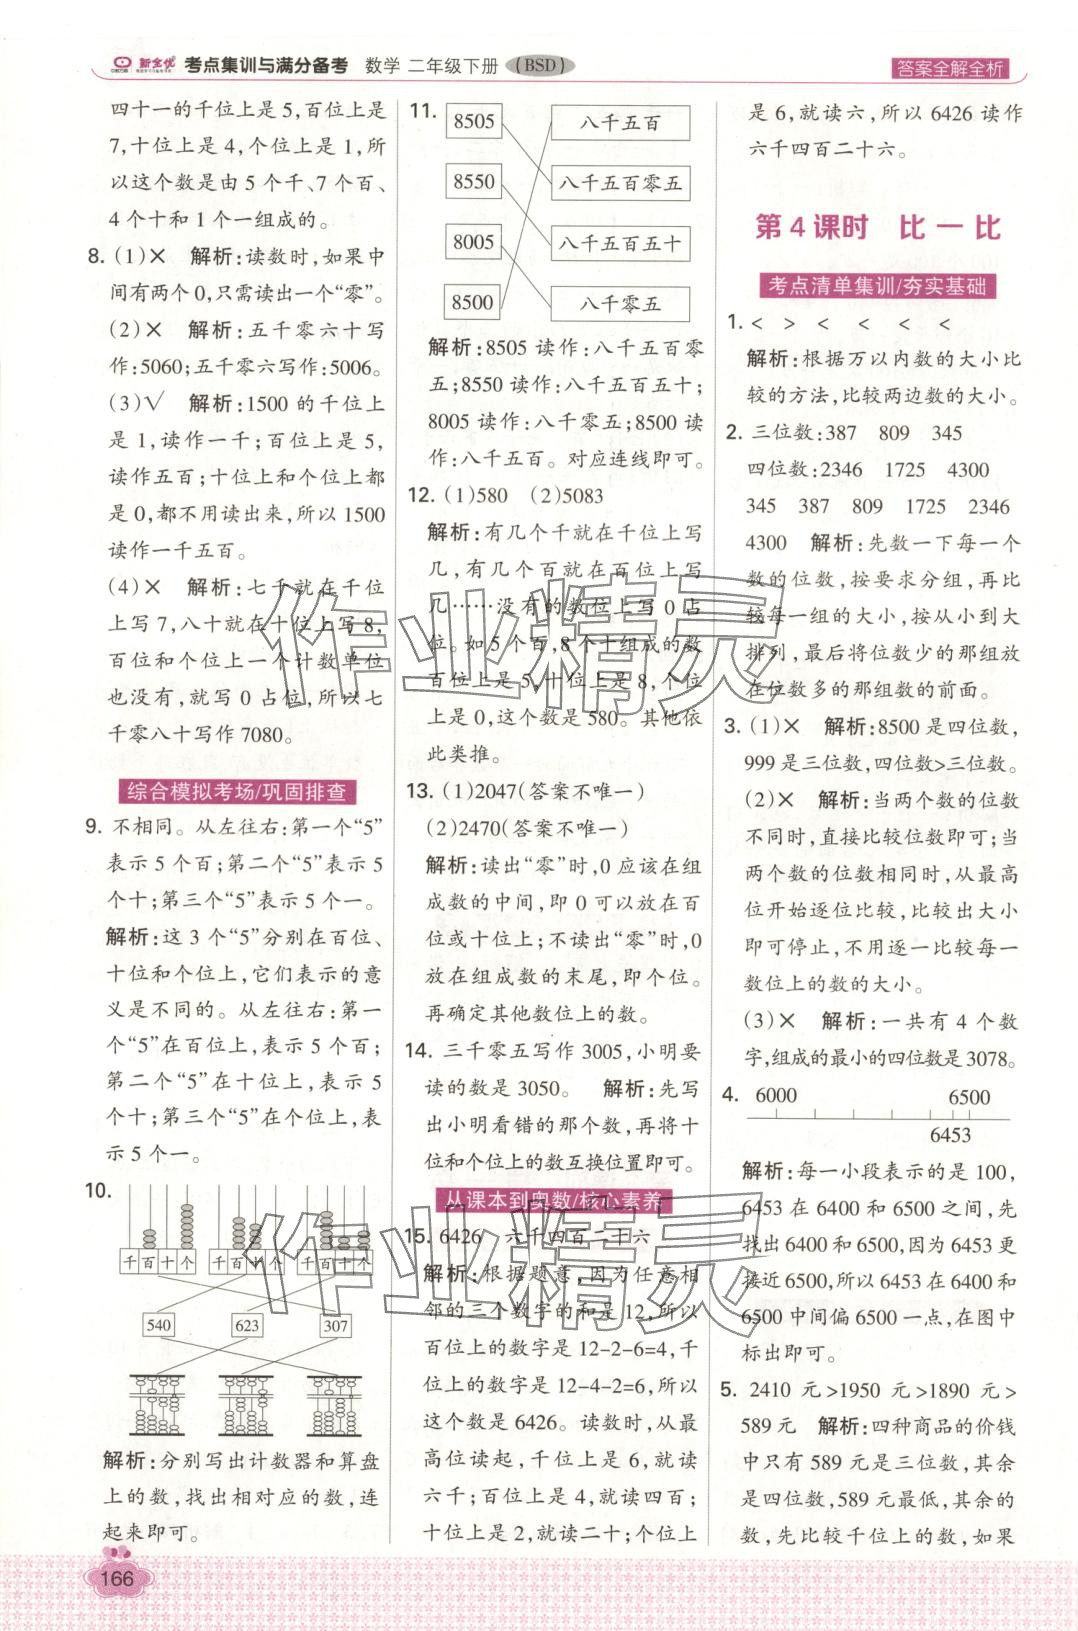 新全优 考点集训与满分备考 数学 二年级下册 (BSD)
答案全解全析
四十一的千位上是5,百位上是
7,十位上是4,个位上是1,所
以这个数是由5个千、7个百、
4个十和1个一组成的。
8. (1)× 解析:读数时,如果中
间有两个0,只需读出一个“零”。
(2)× 解析:五千零六十写
作:5060;五千零六写作:5006。
(3)√ 解析:1500的千位上
是1,读作一千;百位上是5,
读作五百;十位上和个位上都
是0,都不用读出来,所以1500
读作一千五百。
(4)× 解析:七千就在千位
上写7,八十就在十位上写8,
百位和个位上一个计数单位
也没有,就写0占位,所以七
千零八十写作7080。
综合模拟考场/巩固排查
9. 不相同。从左往右:第一个“5”
表示5个百;第二个“5”表示5
个十;第三个“5”表示5个一。
解析:这3个“5”分别在百位、
十位和个位上,它们表示的意
义是不同的。从左往右:第一
个“5”在百位上,表示5个百;
第二个“5”在十位上,表示5
个十;第三个“5”在个位上,表
示5个一。
10.
千百十个 千百十个 千百十个
540 623 307
解析:分别写出计数器和算盘
上的数,找出相对应的数,连
起来即可。
11. 8505 八千五百
8550 八千五百零五
8005 八千五百五十
8500 八千零五
解析:8505读作:八千五百零
五;8550读作:八千五百五十;
8005读作:八千零五;8500读
作:八千五百。对应连线即可。
12. (1)580 (2)5083
解析:有几个千就在千位上写
几,有几个百就在百位上写
几……没有的数位上写0占
位。如5个百,8个十组成的数
百位上是5,十位上是8,个位
上是0,这个数是580。其他依
此类推。
13. (1)2047(答案不唯一)
(2)2470(答案不唯一)
解析:读出“零”时,0应该在组
成数的中间,即0可以放在百
位或十位上;不读出“零”时,0
放在组成数的末尾,即个位。
再确定其他数位上的数。
14. 三千零五写作3005,小明要
读的数是3050。 解析:先写
出小明看错的那个数,再将十
位和个位上的数互换位置即可。
从课本到奥数/核心素养
15. 6426 六千四百二十六
解析:根据题意,因为任意相
邻的三个数字的和是12,所以
百位上的数字是12-2-6=4,千
位上的数字是12-4-2=6,所以
这个数是6426。读数时,从最
高位读起,千位上是6,就读
六千;百位上是4,就读四百;
十位上是2,就读二十;个位上
是6,就读六,所以6426读作
六千四百二十六。
第4课时 比一比
考点清单集训/夯实基础
1. < > < < < <
解析:根据万以内数的大小比
较的方法,比较两边数的大小。
2. 三位数:387 809 345
四位数:2346 1725 4300
345 387 809 1725 2346
4300 解析:先数一下每一个
数的位数,按要求分组,再比
较每一组的大小,按从小到大
排列,最后将位数少的那组放
在位数多的那组数的前面。
3. (1)× 解析:8500是四位数,
999是三位数,四位数>三位数。
(2)× 解析:当两个数的位数
不同时,直接比较位数即可;当
两个数的位数相同时,从最高
位开始逐位比较,比较出大小
即可停止,不用逐一比较每一
数位上的数的大小。
(3)× 解析:一共有4个数
字,组成的最小的四位数是3078。
4. 6000 6500
6453
解析:每一小段表示的是100,
6453在6400和6500之间,先
找出6400和6500,因为6453更
接近6500,所以6453在6400和
6500中间偏6500一点,在图中
标出即可。
5. 2410元>1950元>1890元>
589元 解析:四种商品的价钱
中只有589元是三位数,其余
是四位数,589元最低,其余的
数,先比较千位上的数,如果
166
作业精灵
作业精灵